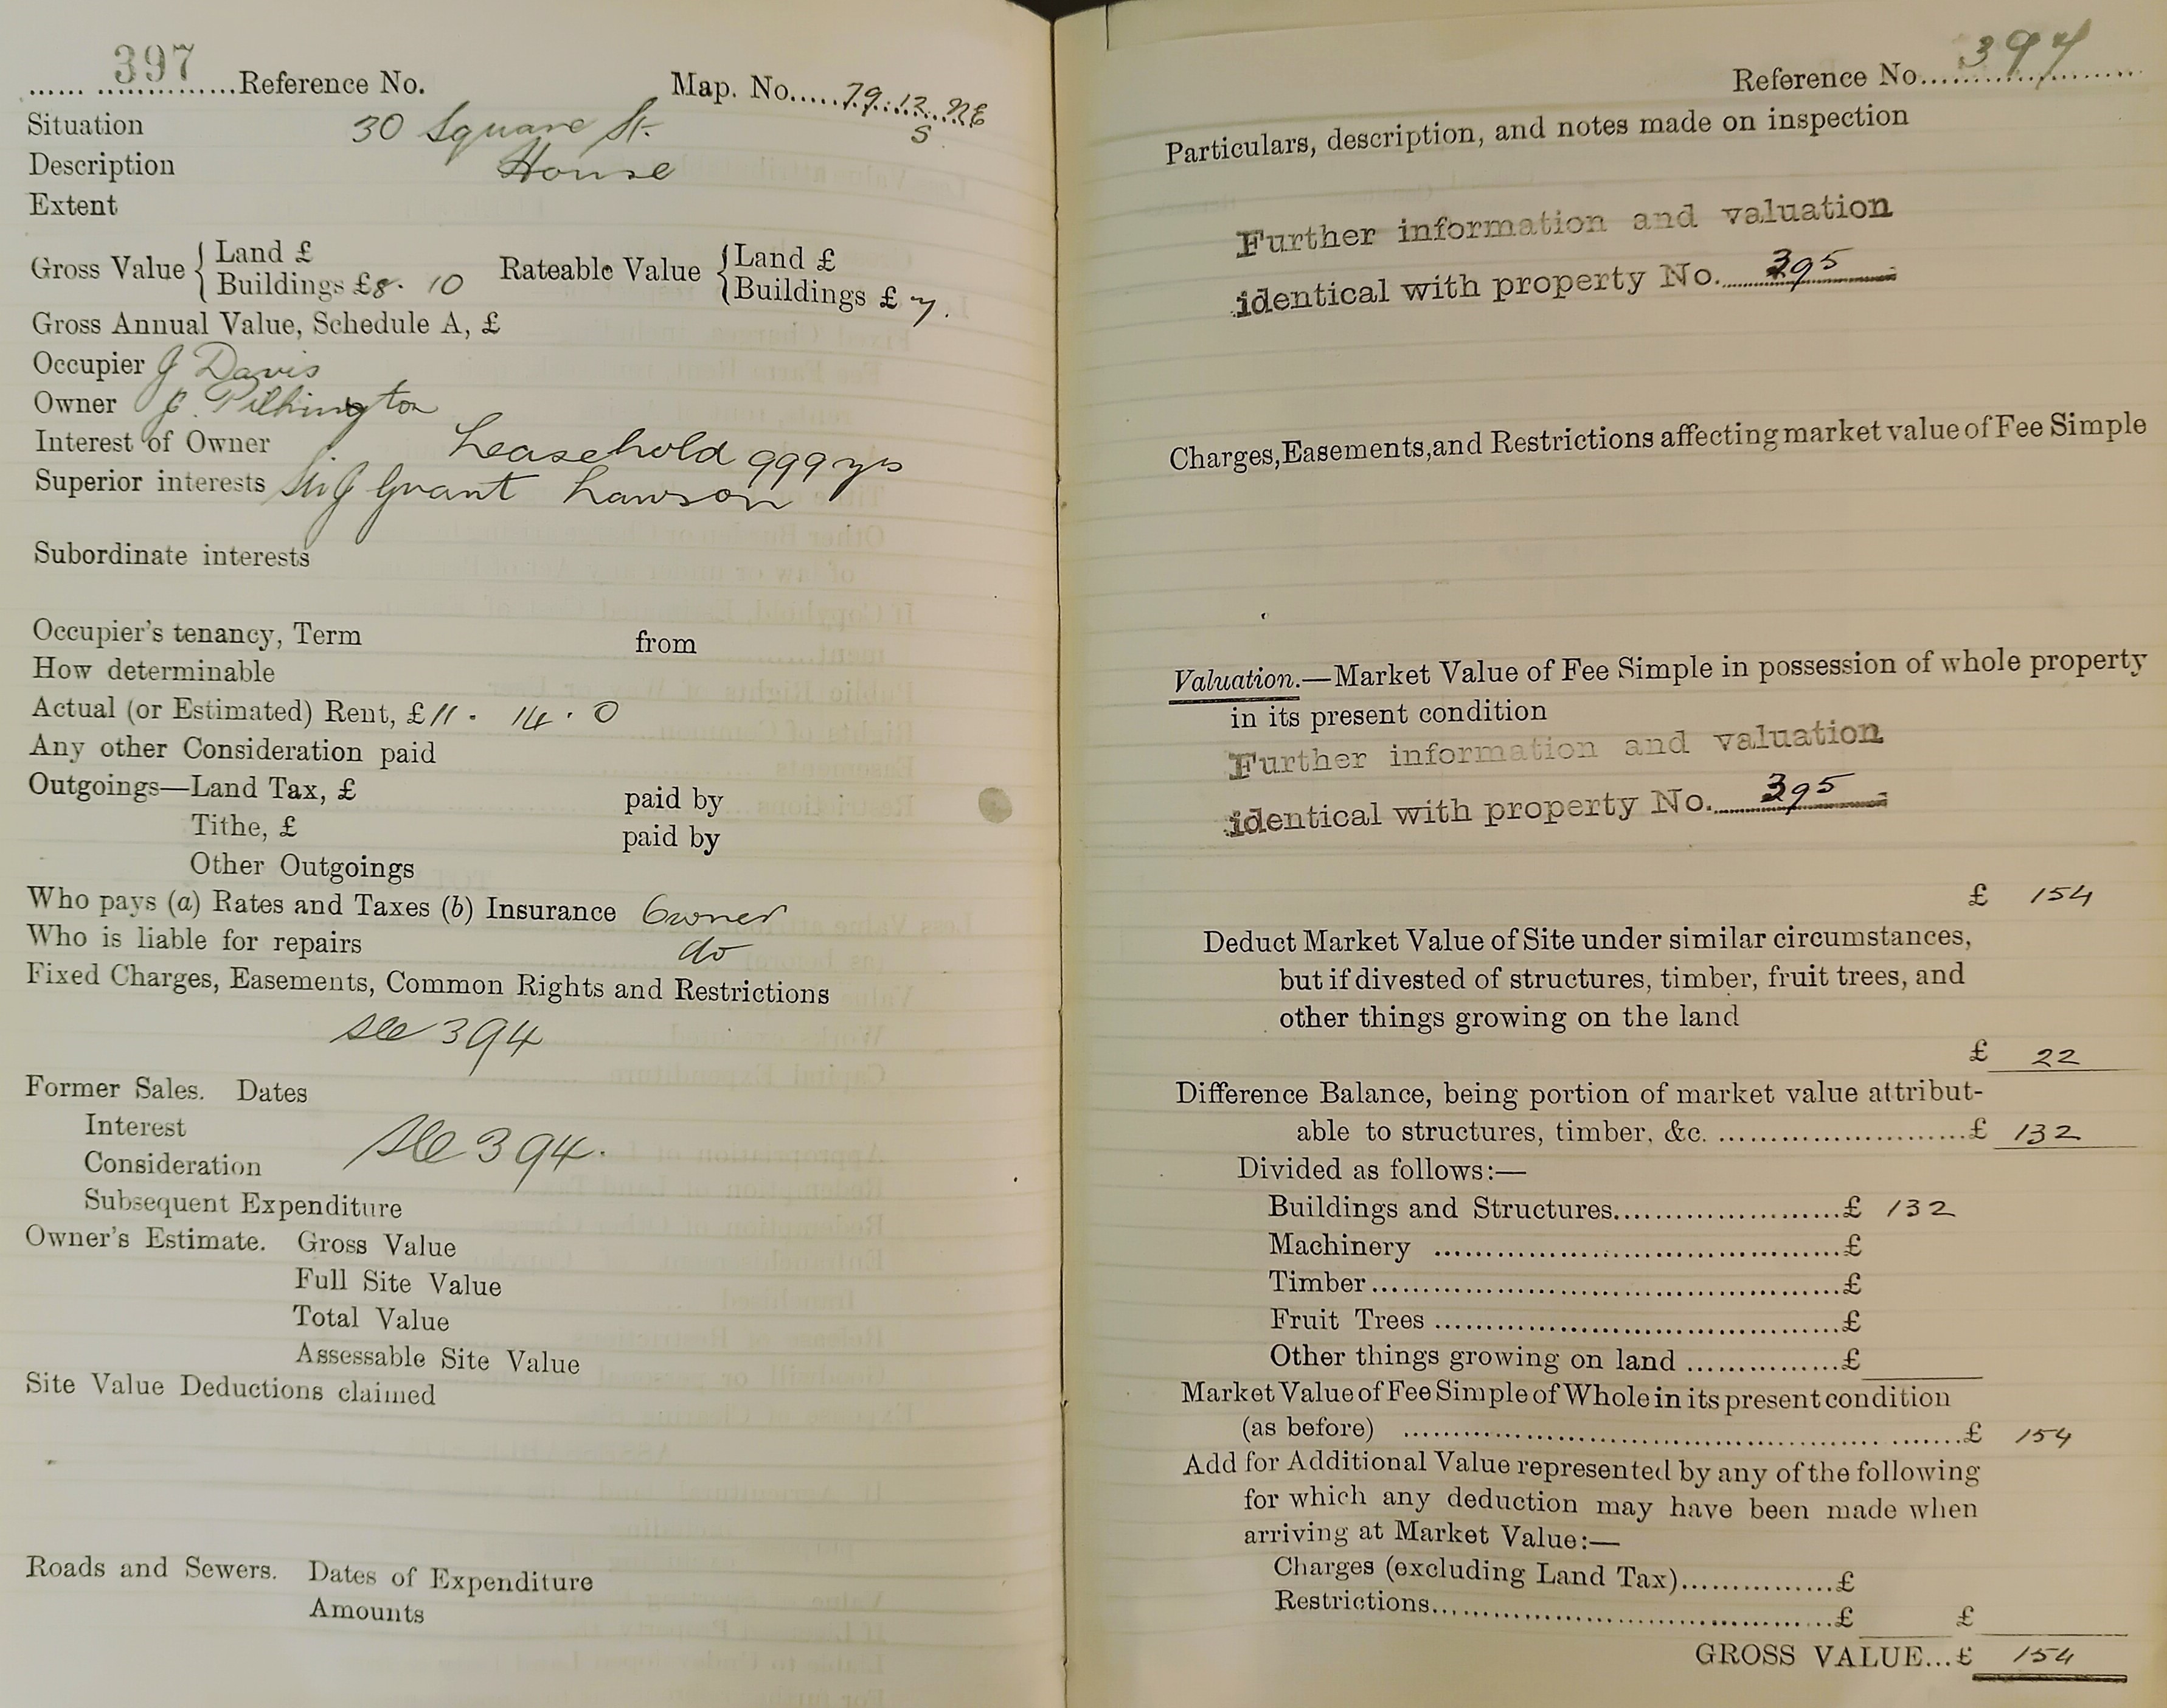 397 Reference No. Map. No. 79.13.NE
S
Situation 30 Square St.
Description House
Extent
Gross Value { Land £
Buildings £8. 10 Rateable Value { Land £
Buildings £ 7.
Gross Annual Value, Schedule A, £
Occupier J Davis
Owner J. Pilkington
Interest of Owner Leasehold 999 yrs
Superior interests Sir J Grant Lawson
Subordinate interests
Occupier's tenancy, Term from
How determinable
Actual (or Estimated) Rent, £11. 14. 0
Any other Consideration paid
Outgoings—Land Tax, £ paid by
Tithe, £ paid by
Other Outgoings
Who pays (a) Rates and Taxes (b) Insurance Owner
Who is liable for repairs do
Fixed Charges, Easements, Common Rights and Restrictions
See 394
Former Sales. Dates
Interest
See 394.
Consideration
Subsequent Expenditure
Owner's Estimate. Gross Value
Full Site Value
Total Value
Assessable Site Value
Site Value Deductions claimed
Roads and Sewers. Dates of Expenditure
Amounts
Reference No. 397
Particulars, description, and notes made on inspection
Further information and valuation
identical with property No. 395
Charges, Easements, and Restrictions affecting market value of Fee Simple
Valuation.—Market Value of Fee Simple in possession of whole property
in its present condition
Further information and valuation
identical with property No. 395
£ 154
Deduct Market Value of Site under similar circumstances,
but if divested of structures, timber, fruit trees, and
other things growing on the land
£ 22
Difference Balance, being portion of market value attribut-
able to structures, timber, &c. £ 132
Divided as follows:—
Buildings and Structures £ 132
Machinery £
Timber £
Fruit Trees £
Other things growing on land £
Market Value of Fee Simple of Whole in its present condition
(as before) £ 154
Add for Additional Value represented by any of the following
for which any deduction may have been made when
arriving at Market Value:—
Charges (excluding Land Tax) £
Restrictions £ £
GROSS VALUE...£ 154